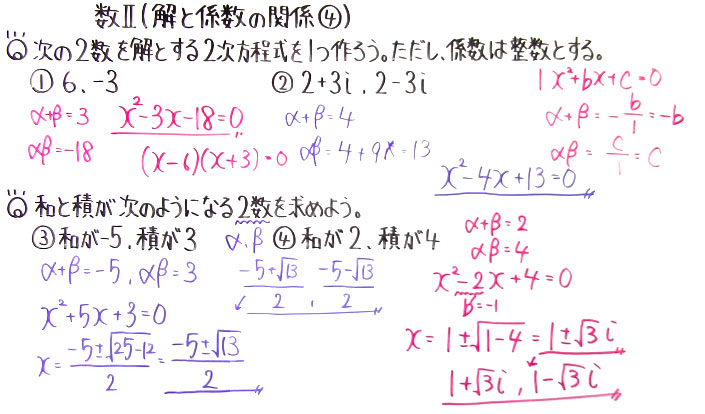 数Ⅱ(解と係数の関係④)
次の2数を解とする2次方程式を1つ作ろう。ただし、係数は整数とする。
① 6、-3
α+β=3 x²-3x-18=0
αβ=-18 (x-6)(x+3)=0
② 2+3i、2-3i
α+β=4
αβ=4+9=13
x²-4x+13=0
1x²+bx+c=0
α+β=-b/1=-b
αβ=c/1=c
和と積が次のようになる2数を求めよう。
③ 和が-5、積が3 α、β
α+β=-5、αβ=3
x²+5x+3=0
x=(-5±√(25-12))/2=(-5±√13)/2
(-5+√13)/2、(-5-√13)/2
④ 和が2、積が4
α+β=2
αβ=4
x²-2x+4=0
b'=-1
x=1±√(1-4)=1±√3i
1+√3i、1-√3i